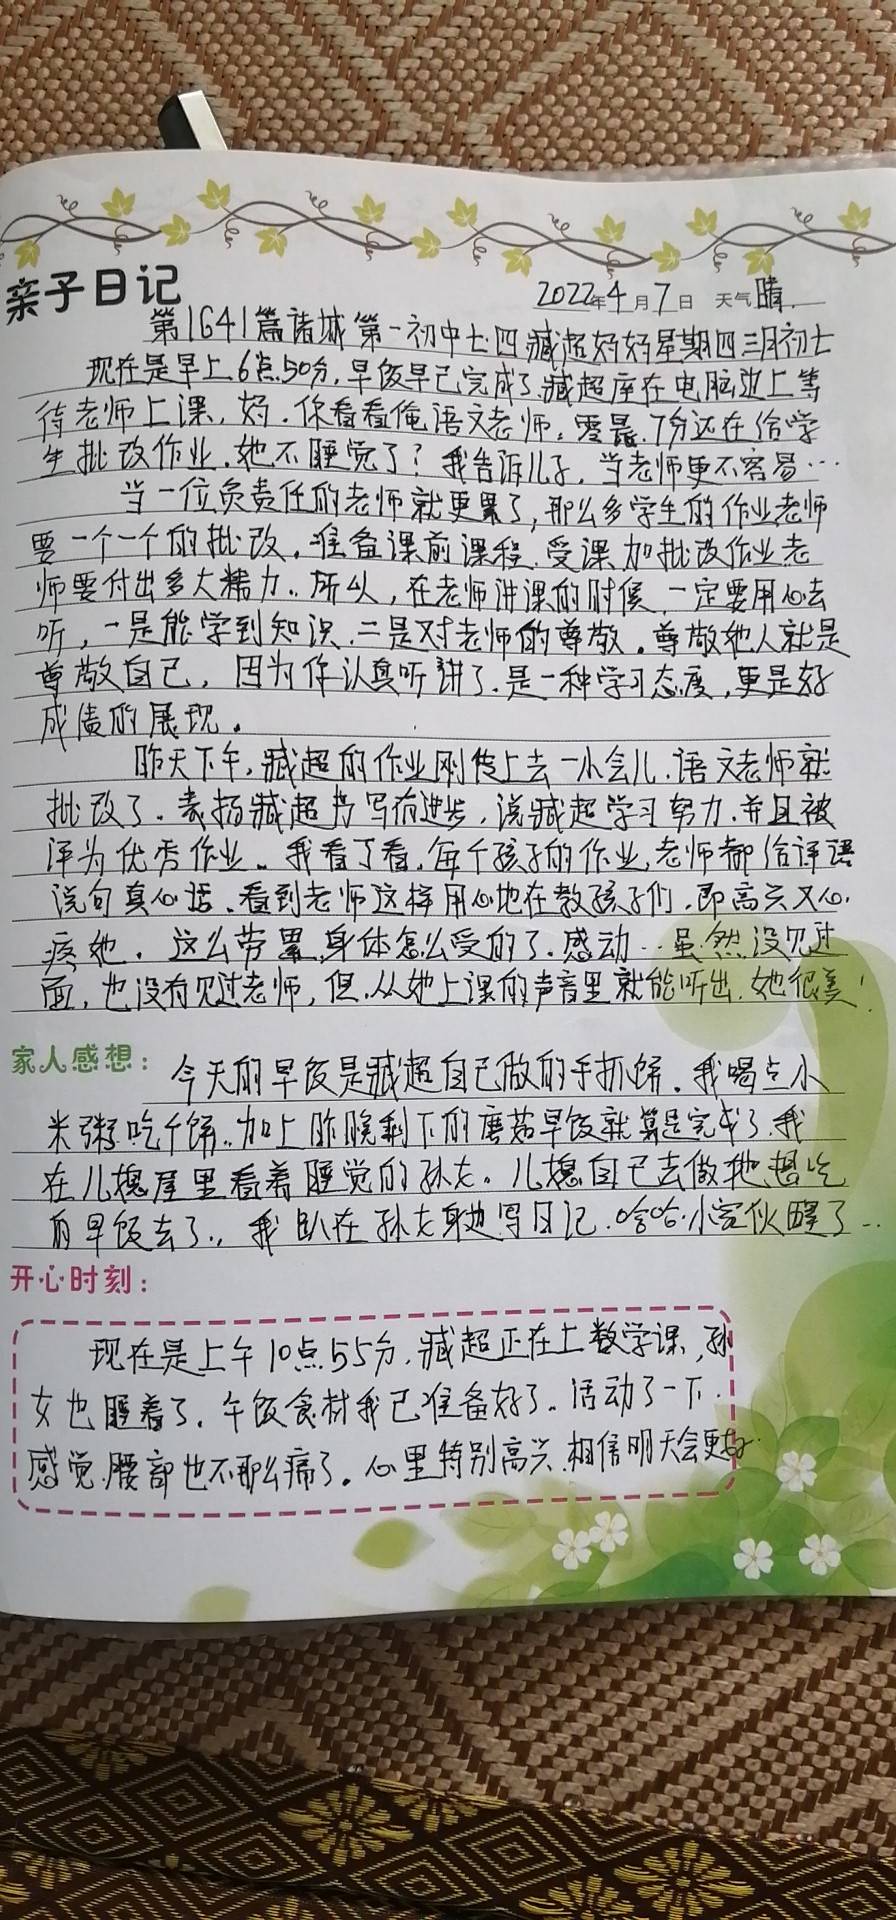 亲子日记
2022年4月7日 天气晴.
第1641篇诸城第一初中七.四臧超妈妈星期四三月初七
现在是早上6点50分,早饭早已完成了.臧超座在电脑边上等
待老师上课,妈.你看看俺语文老师,零晨.7分还在给学
生批改作业.她不睡觉了?我告诉儿子,当老师更不容易…
当一位负责任的老师就更累了,那么多学生的作业老师
要一个一个的批改。准备课前课程.受课加批改作业老
师要付出多大精力..所以,在老师讲课的时候,一定要用心去
听,一是能学到知识.二是对老师的尊敬。尊敬她人就是
尊敬自己,因为你认真听讲了.是一种学习态度,更是好
成绩的展现。
昨天下午,臧超的作业刚传上去一小会儿.语文老师就
批改了。表扬臧超书写有进步,说臧超学习努力.并且被
评为优秀作业。我看了看,每个孩子的作业,老师都给评语
说句真心话.看到老师这样用心地在教孩子们,即高兴又心.
疼她.这么劳累,身体怎么受的了.感动…虽然没见过
面,也没有见过老师,但.从她上课的声音里就能听出.她很美!
家人感想:
今天的早饭是臧超自己做的手抓饼。我喝点小
米粥吃个饼..加上昨晚剩下的蘑菇早饭就算是完成了.我
在儿媳屋里看着睡觉的孙女。儿媳自己去做她想吃
的早饭去了..我趴在孙女身边写日记.哈哈.小家伙醒了…
开心时刻:
现在是上午10点55分.臧超正在上数学课,孙
女也睡着了.午饭食材我已准备好了。活动了一下.
感觉.腰部也不那么痛了。心里特别高兴.相信明天会更好..